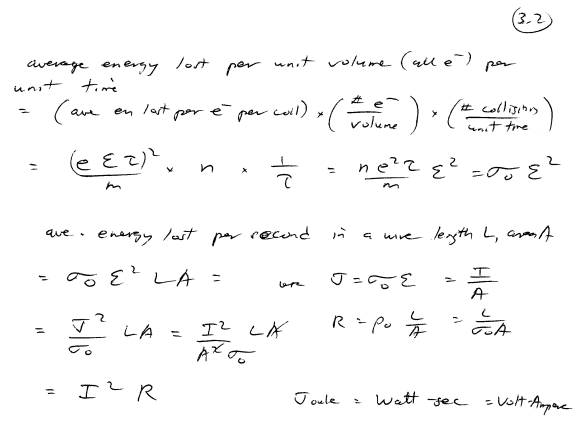 3-2
average energy lost per unit volume (all e⁻) per
unit time
= (ave en lost per e⁻ per coll) × (# e⁻ / volume) × (# collisions / unit time)
= (e ℰ τ)² / m × n × 1/τ = n e² τ / m ℰ² = σ₀ ℰ²
ave. energy lost per second in a wire length L, area A
= σ₀ ℰ² LA = use J = σ₀ ℰ = I/A
= J²/σ₀ LA = I²/(A² σ₀) LA R = ρ₀ L/A = L/(σ₀A)
= I² R Joule = Watt-sec = Volt-Ampere